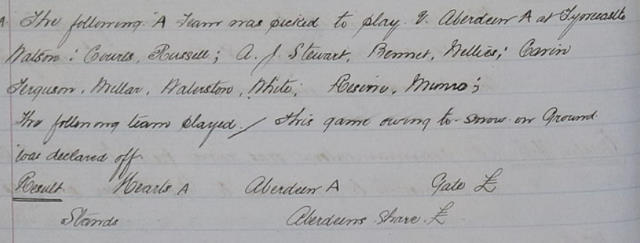 The following A Team was picked to play V. Aberdeen A at Tynecastle
Watson; Cowie, Russell; A. J. Stewart, Bennet, Wellies;
Ferguson, Millar, Waterston, White; Reserve, Munro;
The following team played. / This game owing to snow on Ground
was declared off
Result Hearts A Aberdeen A Gate £
Stands Aberdeens Share £